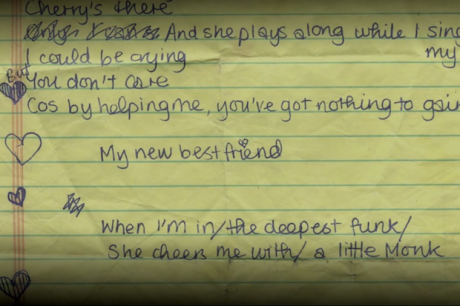 Cherry's there
And she plays along while I sing
I could be crying my
But
You don't care
Cos by helping me, you've got nothing to gain
My new best friend
When I'm in/the deepest funk/
She cheers me with/a little Monk